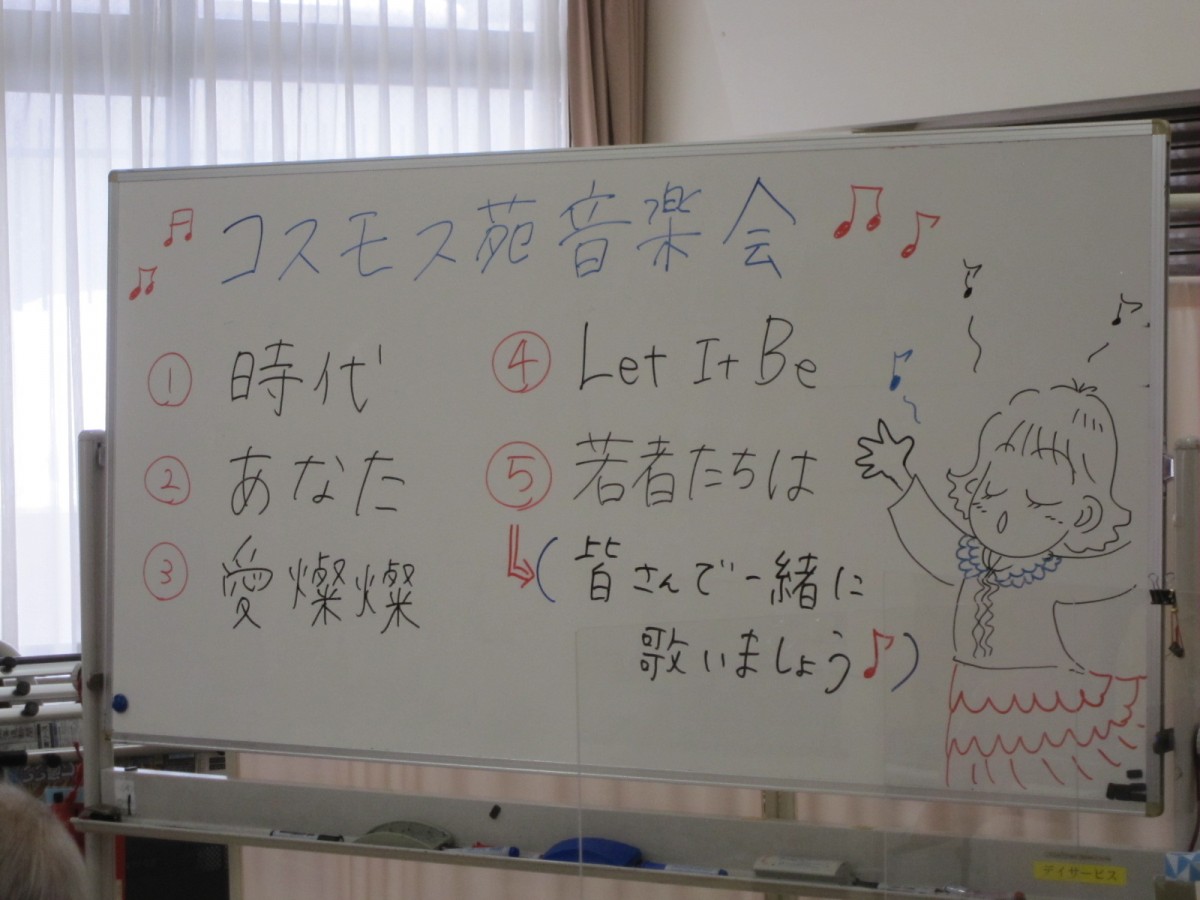 コスモス苑音楽会
① 時代
② あなた
③ 愛燦燦
④ Let It Be
⑤ 若者たちは
(皆さんで一緒に
歌いましょう♪)
デイサービス